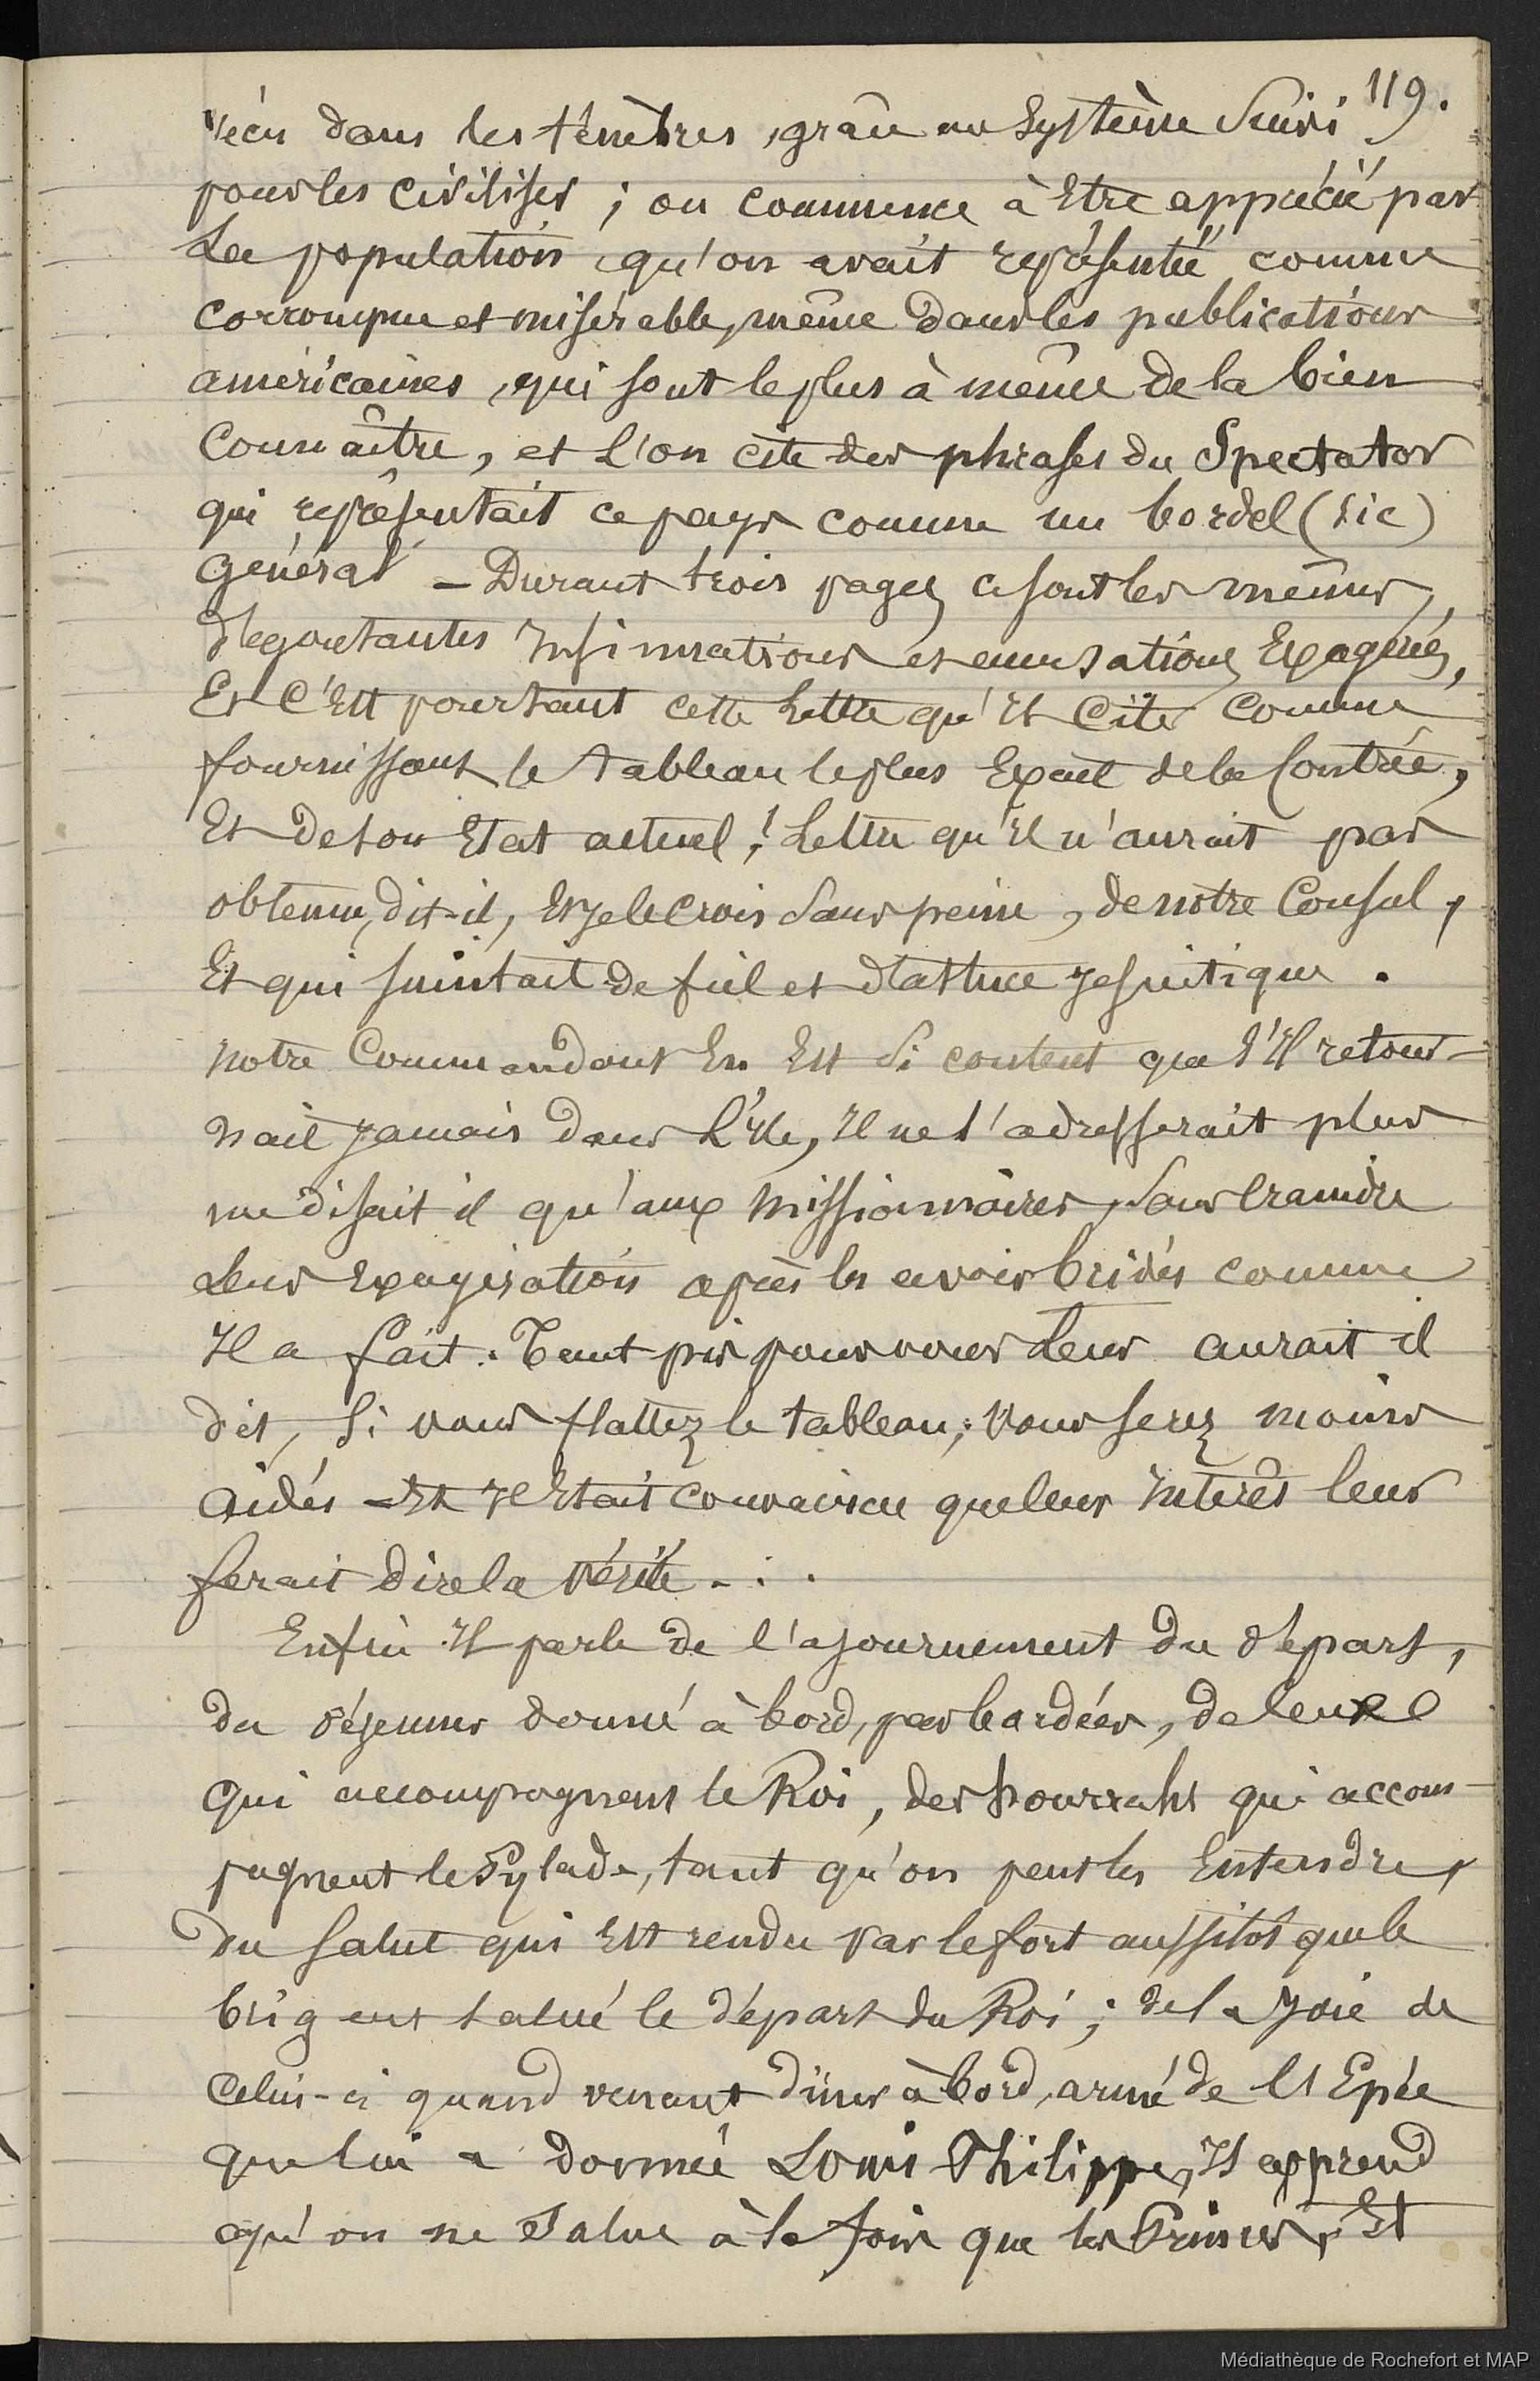 119.
vécu dans les ténèbres, grâce au système suivi
pour les civiliser ; on commence à Etre apprécié par
La population, qu'on avait représentée comme
corrompue et misérable, même dans les publications
américaines, qui sont le plus à même de la bien
Connaître, et L'on cite des phrases du Spectator
qui représentait ce pays comme un bordel (sic)
Général — Durant trois pages ce sont les mêmes,
dégoutantes Insinuations et accusations Exagérées,
Et C'Est pourtant cette Lettre qu'Il Cite comme
fournissant le tableau le plus Exact de la Contrée,
Et de son Etat actuel ! Lettre qu'Il n'aurait pas
obtenu, dit-il, Et je le crois sans peine, de notre Consul,
Et qui suintait de fiel et d'astuce Jesuitique.
Notre Commandant En Est si content que s'Il retour-
nait Jamais dans L'Ile, Il ne s'adresserait plus
me disait il qu'aux Missionnaires, sans Craindre
Leur Exagération après les avoir bridés comme
Il a fait. Tant pis pour vous Leur aurait il
dit, Si vous flattez le tableau ; vous serez moins
aidés — Et Il Etait convaincu que leur Intérêt leur
ferait dire la Vérité - . .
Enfin Il parle de l'ajournement du départ,
du déjeuner donné à bord, par bordées, de ceux
qui accompagnent le Roi, des hourrahs qui accom-
pagnent le Pylade, tant qu'on peut les Entendre,
du salut qui Est rendu par le fort aussitôt que le
brig eut salué le départ du Roi ; de la Joie de
Celui-ci quand venant dîner à bord, armé de l'Epée
que lui a donnée Louis Philippe, Il apprend
qu'on ne salue à la fois que les Princes, Et
Médiathèque de Rochefort et MAP